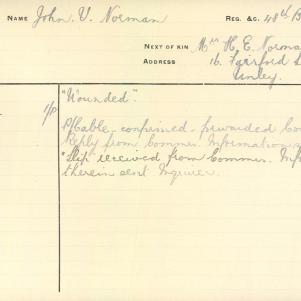 NAME John. V. Norman REG. &C. 48th B
NEXT OF KIN Mrs H. E. Norma
ADDRESS 16. Fairford S
Unley.
"Wounded".
Pfcable confirmed forwarded
Reply from Commes. Information
"Slip" received from Commes. Inf
therein sent Inquirer.